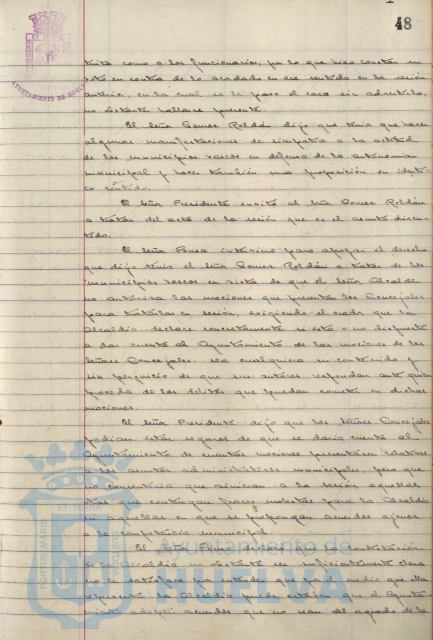 48
AYUNTAMIENTO DE HUELVA
triba como a los funcionarios, por lo que hizo constar su
voto en contra de lo acordado en ese sentido en la sesión
anterior, en la cual se le pasó el caso sin advertirlo,
no obstante hallarse presente.
El señor Gomez Roldán dijo que tenia que hacer
algunas manifestaciones de simpatía a la actitud
de los municipios vascos en defensa de la autonomia
municipal y hacer también una proposición en idénti-
co sentido.
El señor Presidente invitó al señor Gomez Roldán
a tratar del acta de la sesión que es el asunto discu-
tido.
El señor Ponsa intervino para apoyar el derecho
que dijo tenia el señor Gomez Roldán a tratar de los
municipios vascos en vista de que el señor Alcalde
no autoriza las mociones que presentan los Concejales
para tratarlas en sesión, exigiendo el orador que la
Alcaldia declare concretamente si está o no dispuesto
a dar cuenta al Ayuntamiento de las mociones de los
señores Concejales, sea cualquiera su contenido y
sin perjuicio de que sus autores respondan ante quien
proceda de los delitos que puedan cometer en dichas
mociones.
El señor Presidente dijo que los señores Concejales
podian estar seguros de que se daria cuenta al
Ayuntamiento de cuantas mociones presentasen relativas
a los asuntos administrativos municipales, pero que
no consentiria que viniesen a la sesión aquellas
otras que contengan frases molestas para la Alcaldia
ni aquellas en que se propongan acuerdos ajenos
a la competencia municipal.
El señor Ponsa declaró que la contestación
de la Alcaldia no obstante ser suficientemente clara
no le satisface por entender que por el medio que ella
representa la Alcaldia puede estorbar que el Ayunta-
miento adopte acuerdos que no sean del agrado de la
Ayuntamiento de
HUELVA